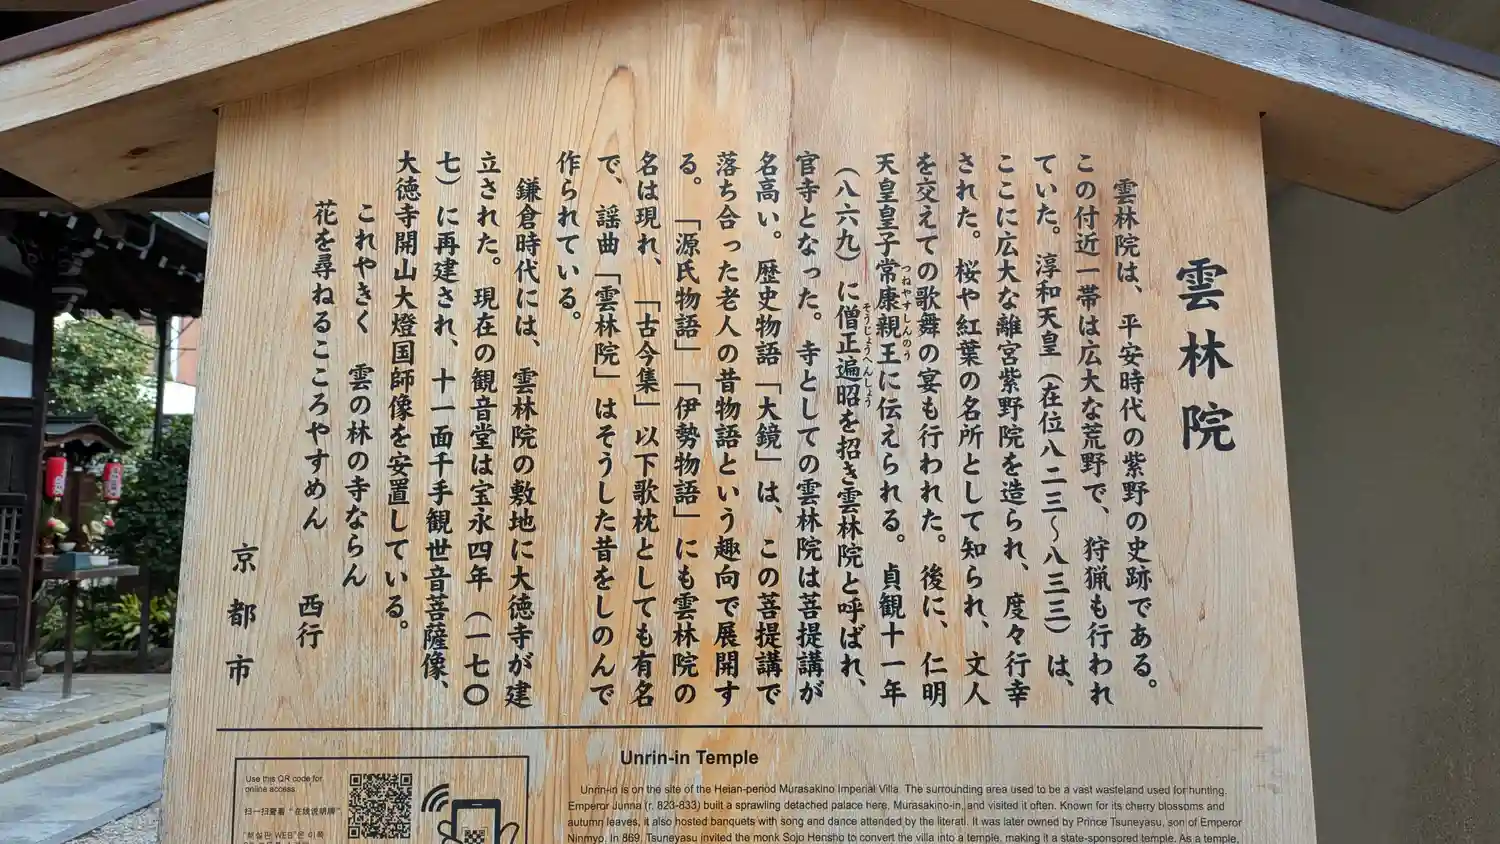 雲林院
雲林院は、平安時代の紫野の史跡である。
この付近一帯は広大な荒野で、狩猟も行われ
ていた。淳和天皇（在位八二三～八三三）は、
ここに広大な離宮紫野院を造られ、度々行幸
された。桜や紅葉の名所として知られ、文人
を交えての歌舞の宴も行われた。後に、仁明
天皇皇子常康親王に伝えられる。貞観十一年
つねやすしんのう
（八六九）に僧正遍昭を招き雲林院と呼ばれ、
そうじょうへんしょう
官寺となった。寺としての雲林院は菩提講が
名高い。歴史物語「大鏡」は、この菩提講で
落ち合った老人の昔物語という趣向で展開す
る。「源氏物語」「伊勢物語」にも雲林院の
名は現れ、「古今集」以下歌枕としても有名
で、謡曲「雲林院」はそうした昔をしのんで
作られている。
鎌倉時代には、雲林院の敷地に大徳寺が建
立された。現在の観音堂は宝永四年（一七〇
七）に再建され、十一面千手観世音菩薩像、
大徳寺開山大燈国師像を安置している。
これやきく　雲の林の寺ならん
花を尋ねるこころやすめん　西行
京都市
Unrin-in Temple
Unrin-in is on the site of the Heian-period Murasakino Imperial Villa. The surrounding area used to be a vast wasteland used for hunting.
Emperor Junna (r. 823-833) built a sprawling detached palace here, Murasakino-in, and visited it often. Known for its cherry blossoms and
autumn leaves, it also hosted banquets with song and dance attended by the literati. It was later owned by Prince Tsuneyasu, son of Emperor
Ninmyo. In 869, Tsuneyasu invited the monk Sojo Hensho to convert the villa into a temple, making it a state-sponsored temple. As a temple,
Use this QR code for
online access.
扫一扫查看 "在线说明牌"
"해설판 WEB"은 이쪽